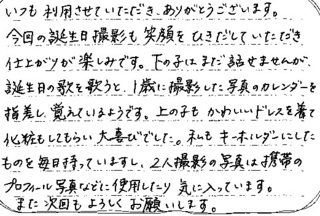 いつも 利用させていただき、ありがとうございます。
今回の誕生日撮影も 笑顔を ひきだしていただき
仕上がりが 楽しみです。下の子は まだ 話せませんが、
誕生日の歌を歌うと、1歳に撮影した写真のカレンダーを
指差し、覚えているようです。上の子も かわいいドレスを着て
化粧もしてもらい 大喜びでした。私も キーホルダーにした
ものを毎日持っていますし、2人撮影の写真は携帯の
プロフィール写真などに使用したり 気に入っています。
また 次回も よろしく お願いします。